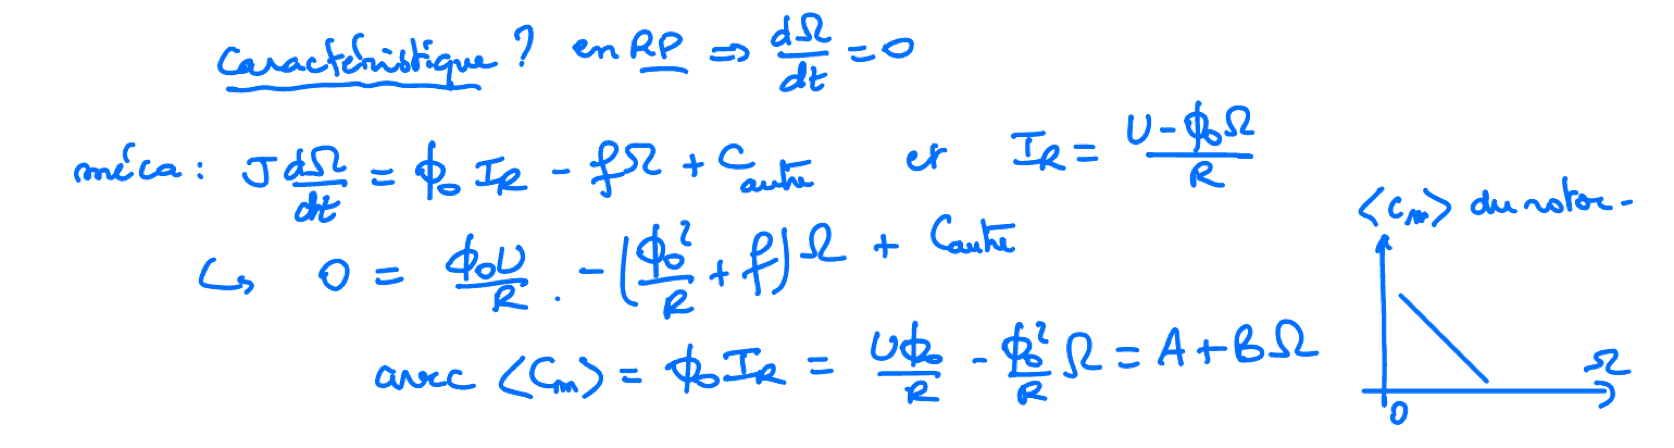 Caractéristique ? en RP ⇒ dΩ/dt = 0
méca : J dΩ/dt = ϕ₀ I_R - fΩ + C_autre et I_R = (U - ϕ₀Ω)/R
↳ 0 = ϕ₀U/R . - (ϕ₀²/R + f)Ω + C_autre
avec ⟨C_m⟩ = ϕ₀ I_R = Uϕ₀/R - ϕ₀²/R Ω = A + BΩ
⟨C_m⟩ du rotor -
Ω
0